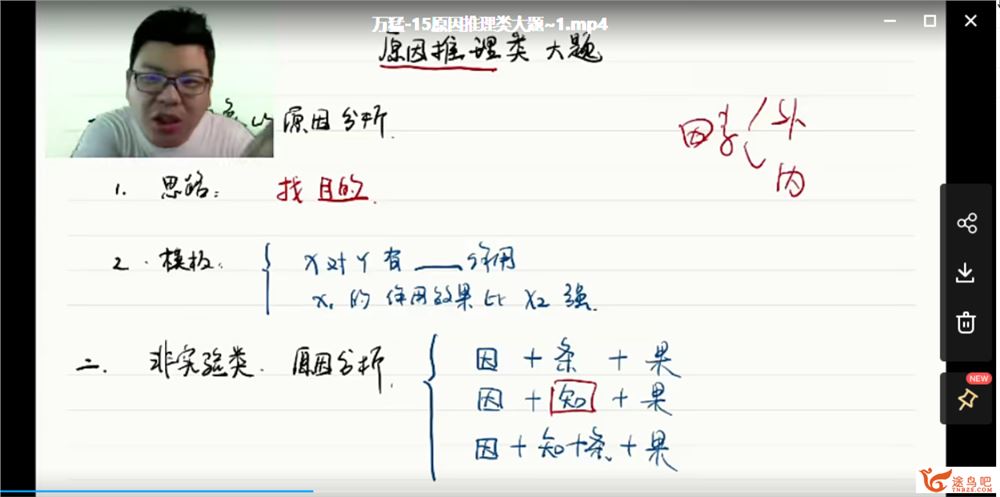 万猛-15原因推理类大题~1.mp4
原因推理类大题
原因分析.
因素 外
内
1. 思路: 找目的.
2. 模板: X对Y有___作用
X₁的作用效果比X₂强.
NEW
二. 非实验类. 原因分析. 因 + 条 + 果
因 + 知 + 果
因 + 知+条 + 果
途鸟吧
TNBZS.COM